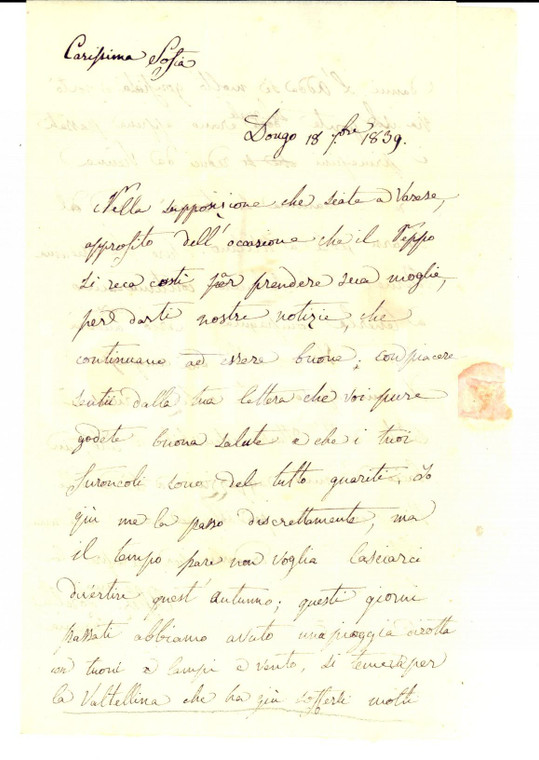 Carissima Sofia
Dongo 18 7bre 1839.
Nella supposizione che siate a Varese,
approfito dell'occasione che il Peppo
si reca costì per prendere sua moglie,
per darti nostre notizie che
continuano ad essere buone; con piacere
sentii dalla tua lettera che voi pure
godete buona salute e che i tuoi
furoncoli sono del tutto guariti. Io
qui me la passo discretamente, ma
il tempo pare non voglia lasciarci
divertire quest'autunno; questi giorni
passati abbiamo avuto una pioggia dirotta
con tuoni e lampi e vento, si temeva per
la Valtellina che ha già sofferti molti